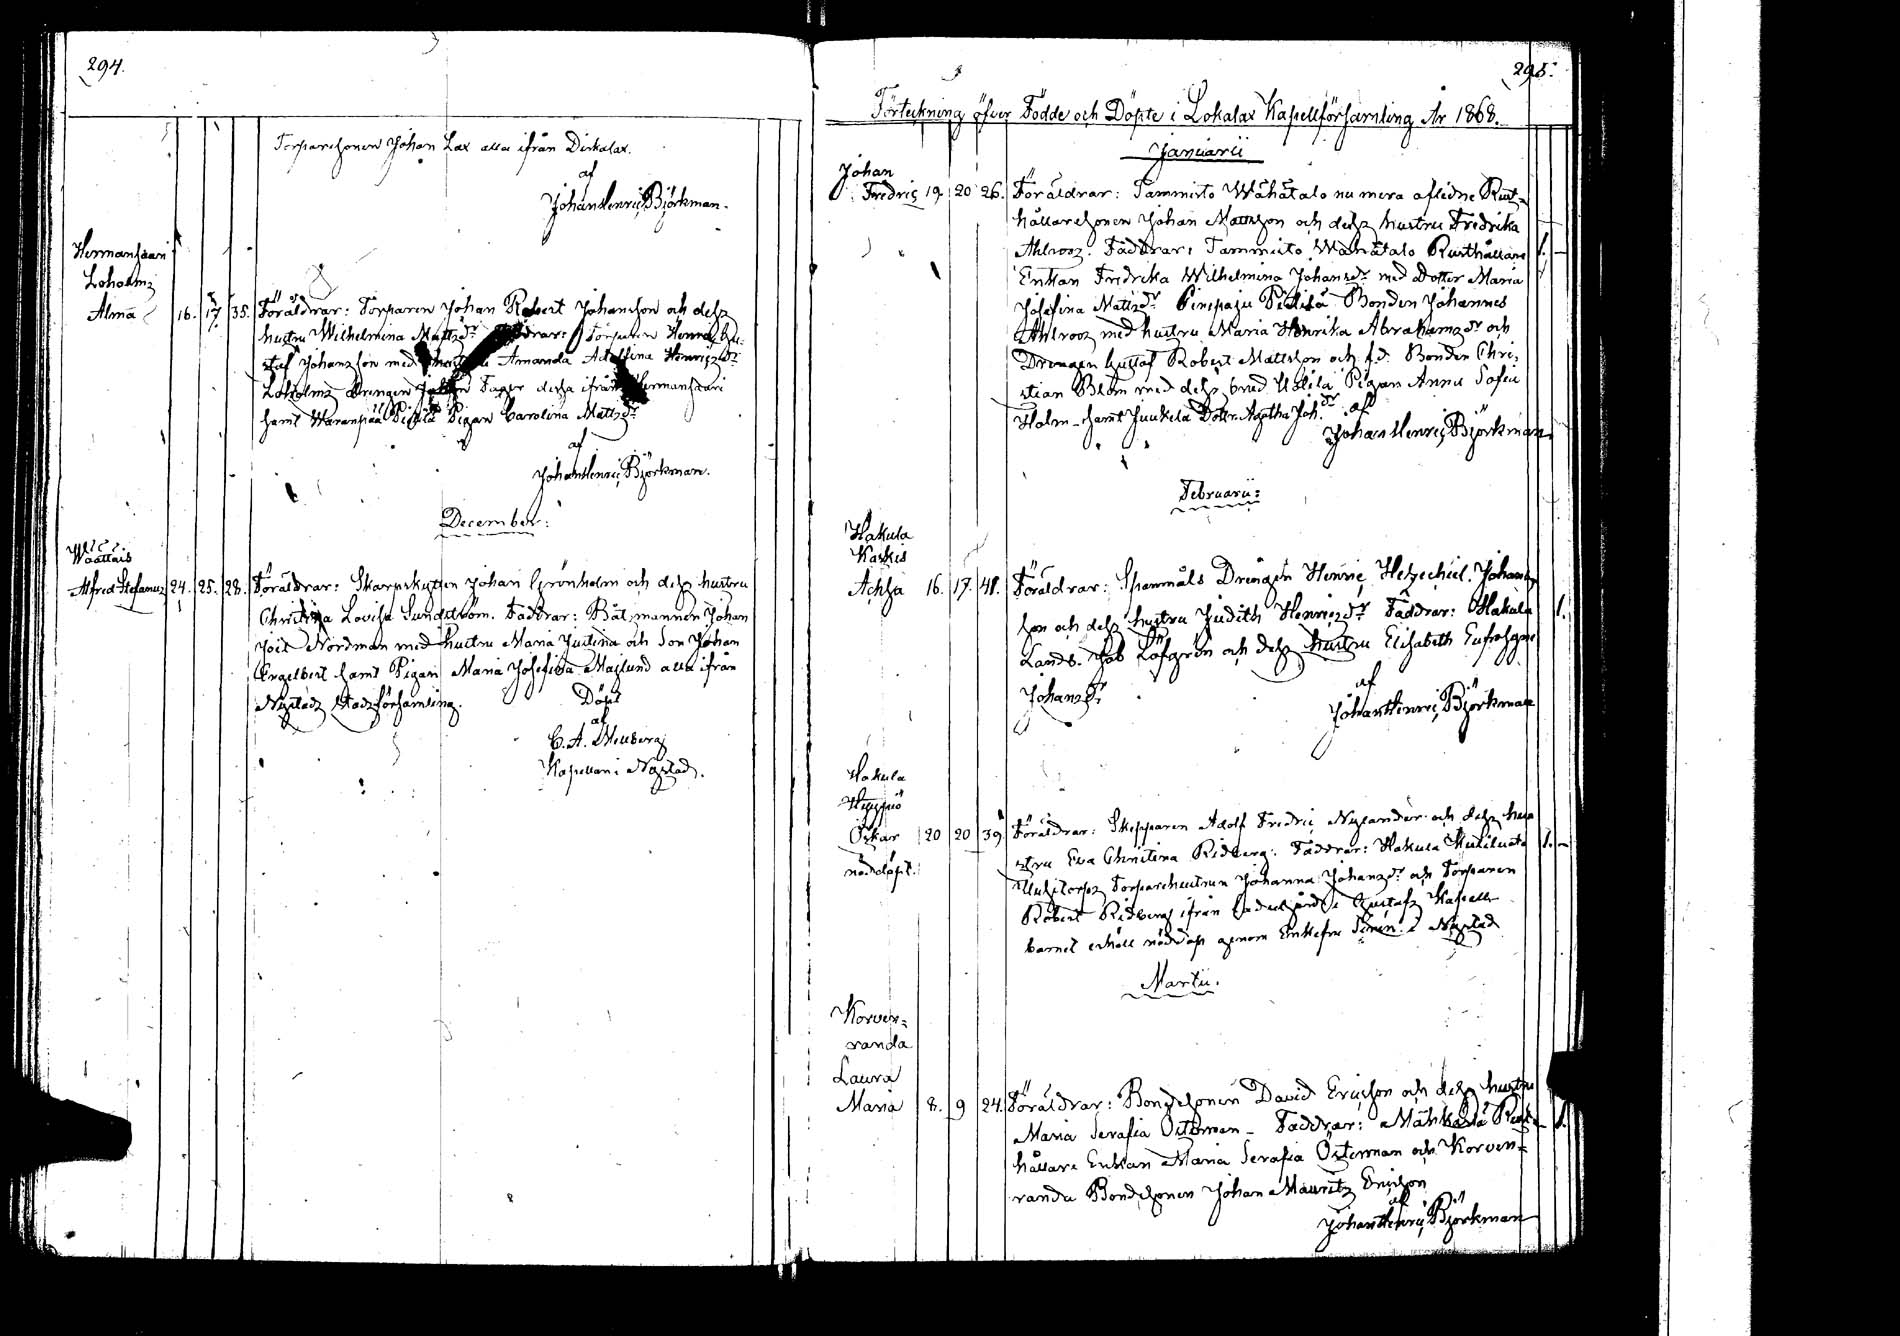 294.
Torparesonen Johan Lax alla ifrån Dirkalax.
af
Johan Henric Björkman.
Hermansaari
Loholms
Alma 16. 17. 35. Föräldrar: Torparen Johan Robert Johansson och dess
hustru Wilhelmina Mattsdr Faddrar: Torparen Henric Gu-
staf Johansson med hustru Amanda Adolfina Henricsdr
Loholms Drengen Johan Fager dessa ifrån Hermansaari
samt Waranpää Pigan Carolina Mattsdr
af
Johan Henric Björkman.
December:
Waattais
Alfred Stefanus 24. 25. 28. Föräldrar: Skarpskytten Johan Grönholm och dess hustru
Christina Lovisa Sundström. Faddrar: Båtsmannen Johan
Nordman med hustru Maria Justina och Son Johan
Engelbert samt Pigan Maria Josefina Maslund alla ifrån
Nystads Stadsförsamling.
Döpt
af
C. A. Mellberg
Kapellan i Nystad.
295.
Förteckning öfver Födde och Döpte i Lokalax Kapellförsamling År 1868.
Januarii
Johan
Fredric 19 20 26. Föräldrar: Tammisto Wähätalo nu mera aflidne Rust-
hållaresonen Johan Mattsson och dess hustru Fredrika
Ahlroos. Faddrar: Tammisto Wähätalo Rusthållare 1. -
Enkan Fredrika Wilhelmina Johansdr med Dotter Maria
Josefina Mattsdr Pinipaju Bonden Johannes
Ahlroos med hustru Maria Henrika Abrahamsdr och
Drengen Gustaf Robert Mattsson och f.d. Bonden Chri-
stian Blom med dess brud Pigan Anna Sofia
Holm - samt Juukela Dottr. Agatha Joh.dr af
Johan Henric Björkman
Februarii:
Hakula
Kaskis
Achsa 16. 17. 41. Föräldrar: Spanmåls Drengen Henric Hesechiel Johans-
son och dess hustru Judith Henricsdr Faddrar: Hakula 1.
Lands. Job Löfgren och dess hustru Elisabeth Eufrosyne
Johansdr
af
Johan Henric Björkman
Hakula
Hyyppiö
Oskar 20 20 39 Föräldrar: Skepparen Adolf Fredric Nylander och dess hu-
stru Eva Christina Ridberg. Faddrar: Hakula 1. -
Torparehustrun Johanna Johansdr och Torparen
Robert Ridberg ifrån i Gustafs Kapell
nöddöpt.
barnet erhöll nöddop genom Enkefru i Nystad
Martii.
Korven-
randa
Laura
Maria 8. 9 24. Föräldrar: Bondesonen David Ericsson och dess hustru
Maria Serafia Österman - Faddrar: Rust- 1.
hållare Enkan Maria Serafia Österman och Korven-
randa Bondesonen Johan Mauritz Ericsson
af
Johan Henric Björkman